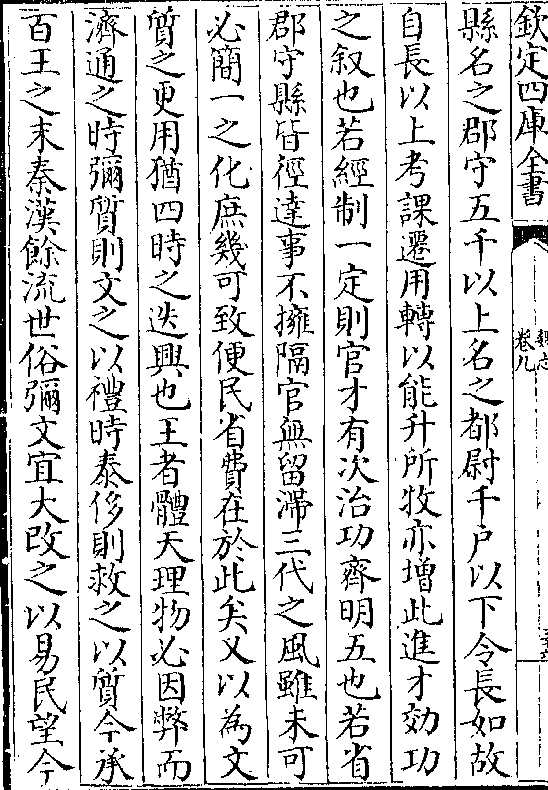 欽定四庫全書
魏志
卷九
縣名之郡守五千以上名之都尉千戶以下令長如故
自長以上考課遷用轉以能升所牧亦增此進才効功
之叙也若經制一定則官才有次治功齊明五也若省
郡守縣皆徑達事不擁隔官無留滯三代之風雖未可
必簡一之化庶幾可致便民省費在於此矣又以為文
質之更用猶四時之迭興也王者體天理物必因弊而
濟通之時彌質則文之以禮時泰侈則救之以質今承
百王之末秦漢餘流世俗彌文宜大改之以易民望今